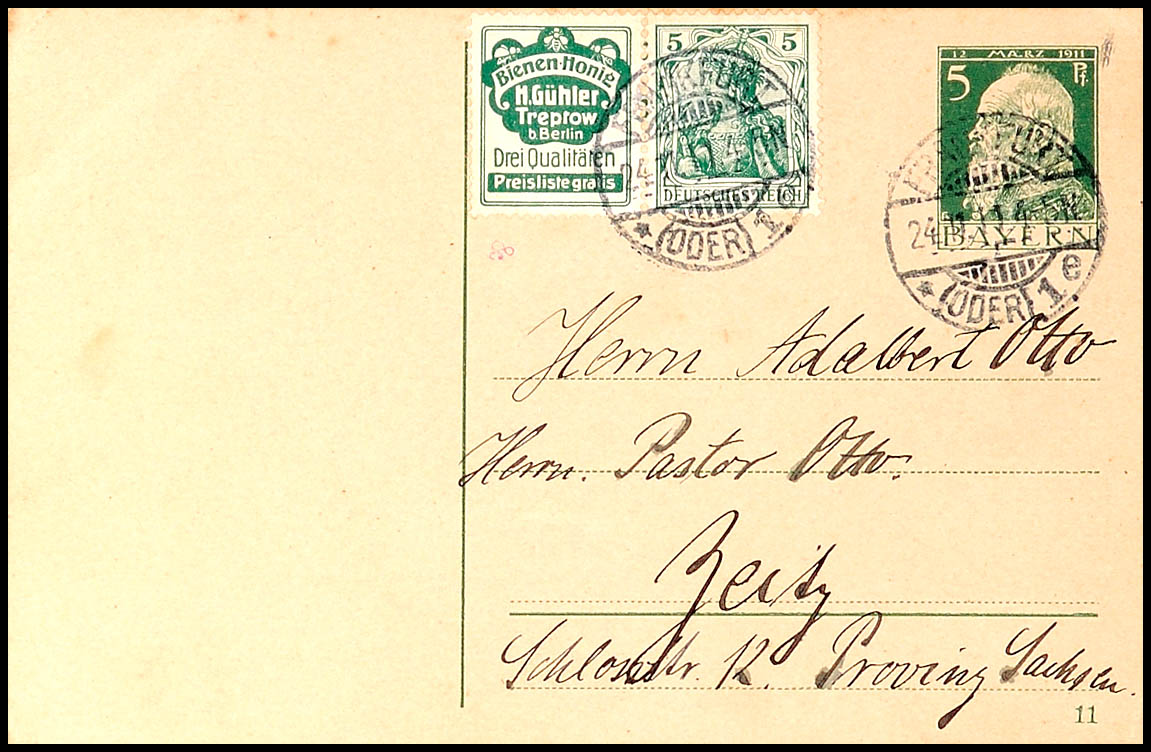 Bienen-Honig
H. Gühler
Treptow
b. Berlin
Drei Qualitäten
Preisliste gratis
5 5
DEUTSCHES REICH
FRANKFURT
24.11.11.4-5N
* (ODER) 1e
12 MÆRZ 1911
5 Pf.
BAYERN
FRANKFURT
24.11.11.4-5N
* (ODER) 1e
Herrn Adalbert Otto
Herrn. Pastor Otto.
Zeitz
Schlossstr. 12. Provinz Sachsen.
11